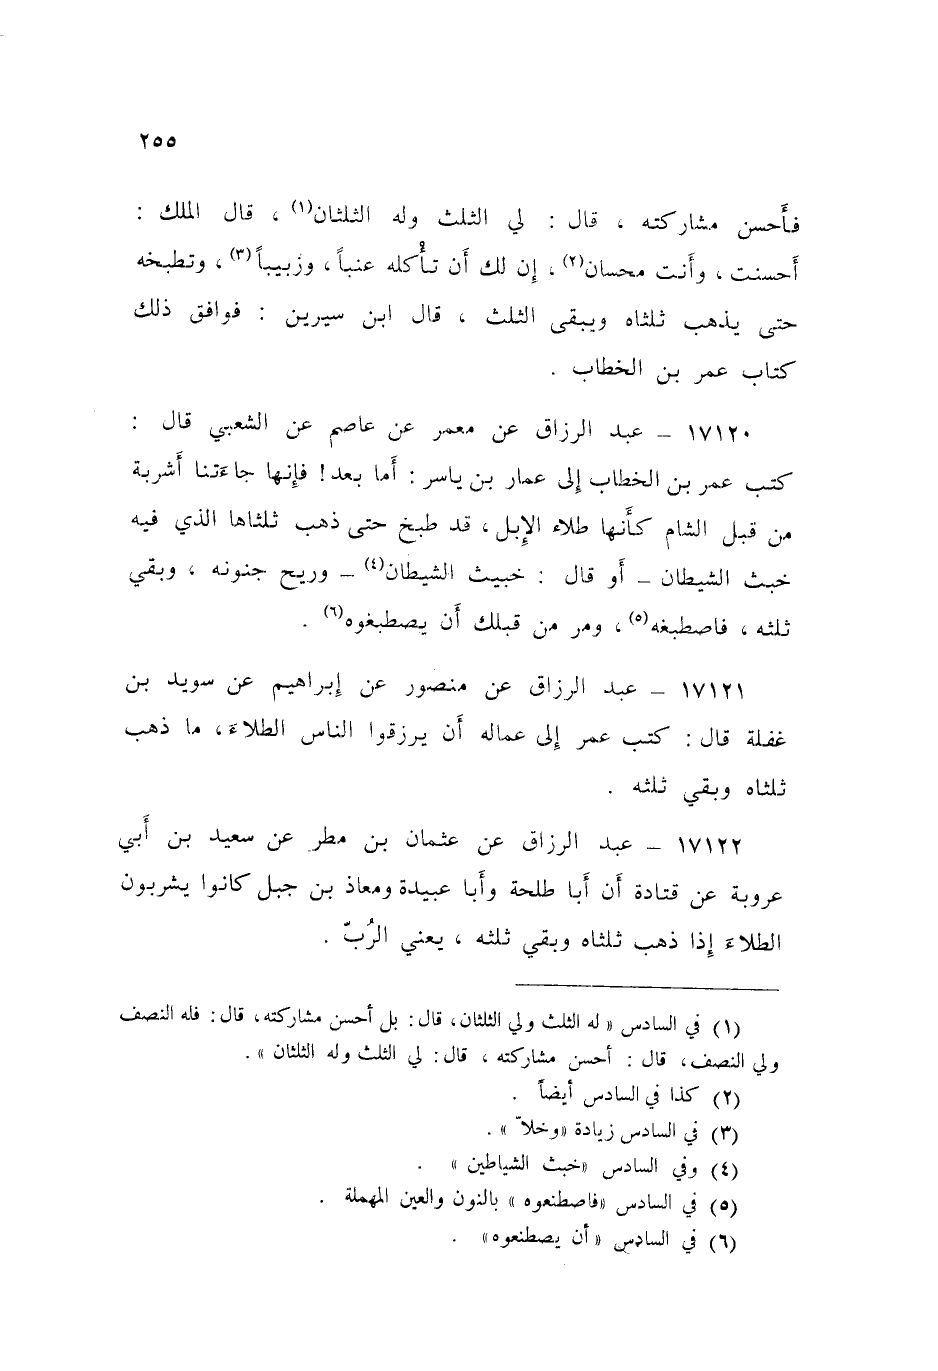 ٢٥٥
فأحسن مشاركته ، قال : لي الثلث وله الثلثان(١) ، قال الملك :
أحسنت ، وأنت محسان(٢) ، إن لك أن تأكله عنباً ، وزبيباً(٣) ، وتطبخه
حتى يذهب ثلثاه ويبقى الثلث ، قال ابن سيرين : فوافق ذلك
كتاب عمر بن الخطاب .
١٧١٢٠ ــ عبد الرزاق عن معمر عن عاصم عن الشعبي قال :
كتب عمر بن الخطاب إلى عمار بن ياسر : أما بعد! فإنها جاءتنا أشربة
من قبل الشام كأنها طلاء الإبل ، قد طبخ حتى ذهب ثلثاها الذي فيه
خبث الشيطان ــ أو قال : خبيث الشيطان(٤) ــ وريح جنونه ، وبقي
ثلثه ، فاصطبغه(٥) ، ومر من قبلك أن يصطبغوه(٦) .
١٧١٢١ ــ عبد الرزاق عن منصور عن إبراهيم عن سويد بن
غفلة قال : كتب عمر إلى عماله أن يرزقوا الناس الطلاءَ ، ما ذهب
ثلثاه وبقي ثلثه .
١٧١٢٢ ــ عبد الرزاق عن عثمان بن مطر عن سعيد بن أبي
عروبة عن قتادة أن أبا طلحة وأبا عبيدة ومعاذ بن جبل كانوا يشربون
الطلاءَ إذا ذهب ثلثاه وبقي ثلثه ، يعني الرُبّ .
(١) في السادس « له الثلث ولي الثلثان ، قال : بل أحسن مشاركته ، قال : فله النصف
ولي النصف ، قال : أحسن مشاركته ، قال : لي الثلث وله الثلثان » .
(٢) كذا في السادس أيضاً .
(٣) في السادس زيادة «وخلاّ » .
(٤) وفي السادس «خبث الشياطين » .
(٥) في السادس «فاصطنعوه » بالنون والعين المهملة .
(٦) في السادس « أن يصطنعوه» .